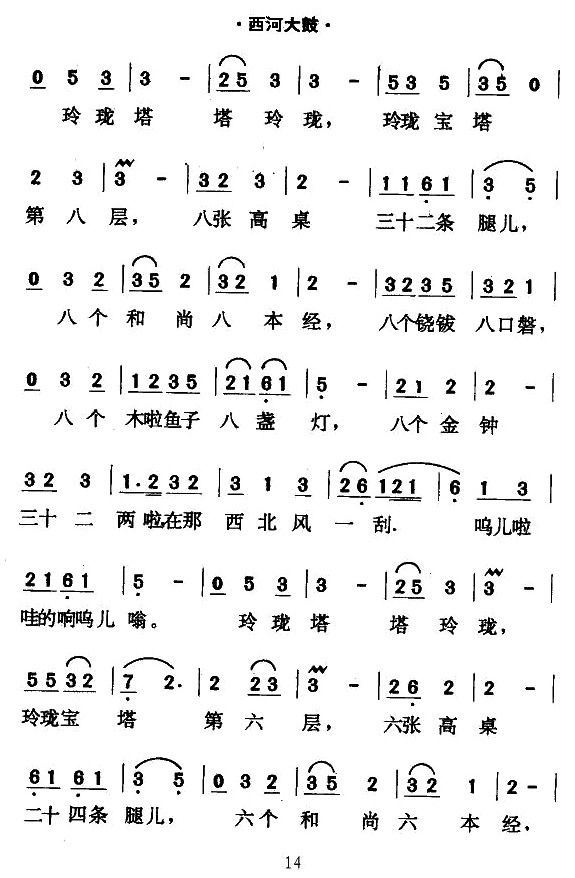 ·西河大鼓·
0 5 3 | 3 - | 25 3 | 3 - | 53 5 | 35 0 |
玲珑塔 塔玲珑， 玲珑宝塔
2 3 | 3 - | 32 3 | 2 - | 1161 | 3 5 |
第八层， 八张高桌 三十二条腿儿，
0 3 2 | 35 2 | 32 1 | 2 - | 3235 | 321 |
八个和尚八本经， 八个铙钹八口磬，
0 3 2 | 1235 | 21 61 | 5 - | 21 2 | 2 - |
八个木啦鱼子八盏灯， 八个金钟
32 3 | 1·232 | 3 1 3 | 26 121 | 6 1 3 |
三十二两啦在那西北风一刮. 呜儿啦
2161 | 5 - | 0 5 3 | 3 - | 25 3 | 3 - |
哇的响呜儿嗡。 玲珑塔 塔玲珑，
5532 | 7 2. | 2 23 | 3 - | 26 2 | 2 - |
玲珑宝塔 第六层， 六张高桌
61 61 | 3 5 | 0 3 2 | 35 2 | 32 1 | 2 - |
二十四条腿儿， 六个和尚六本经，
14